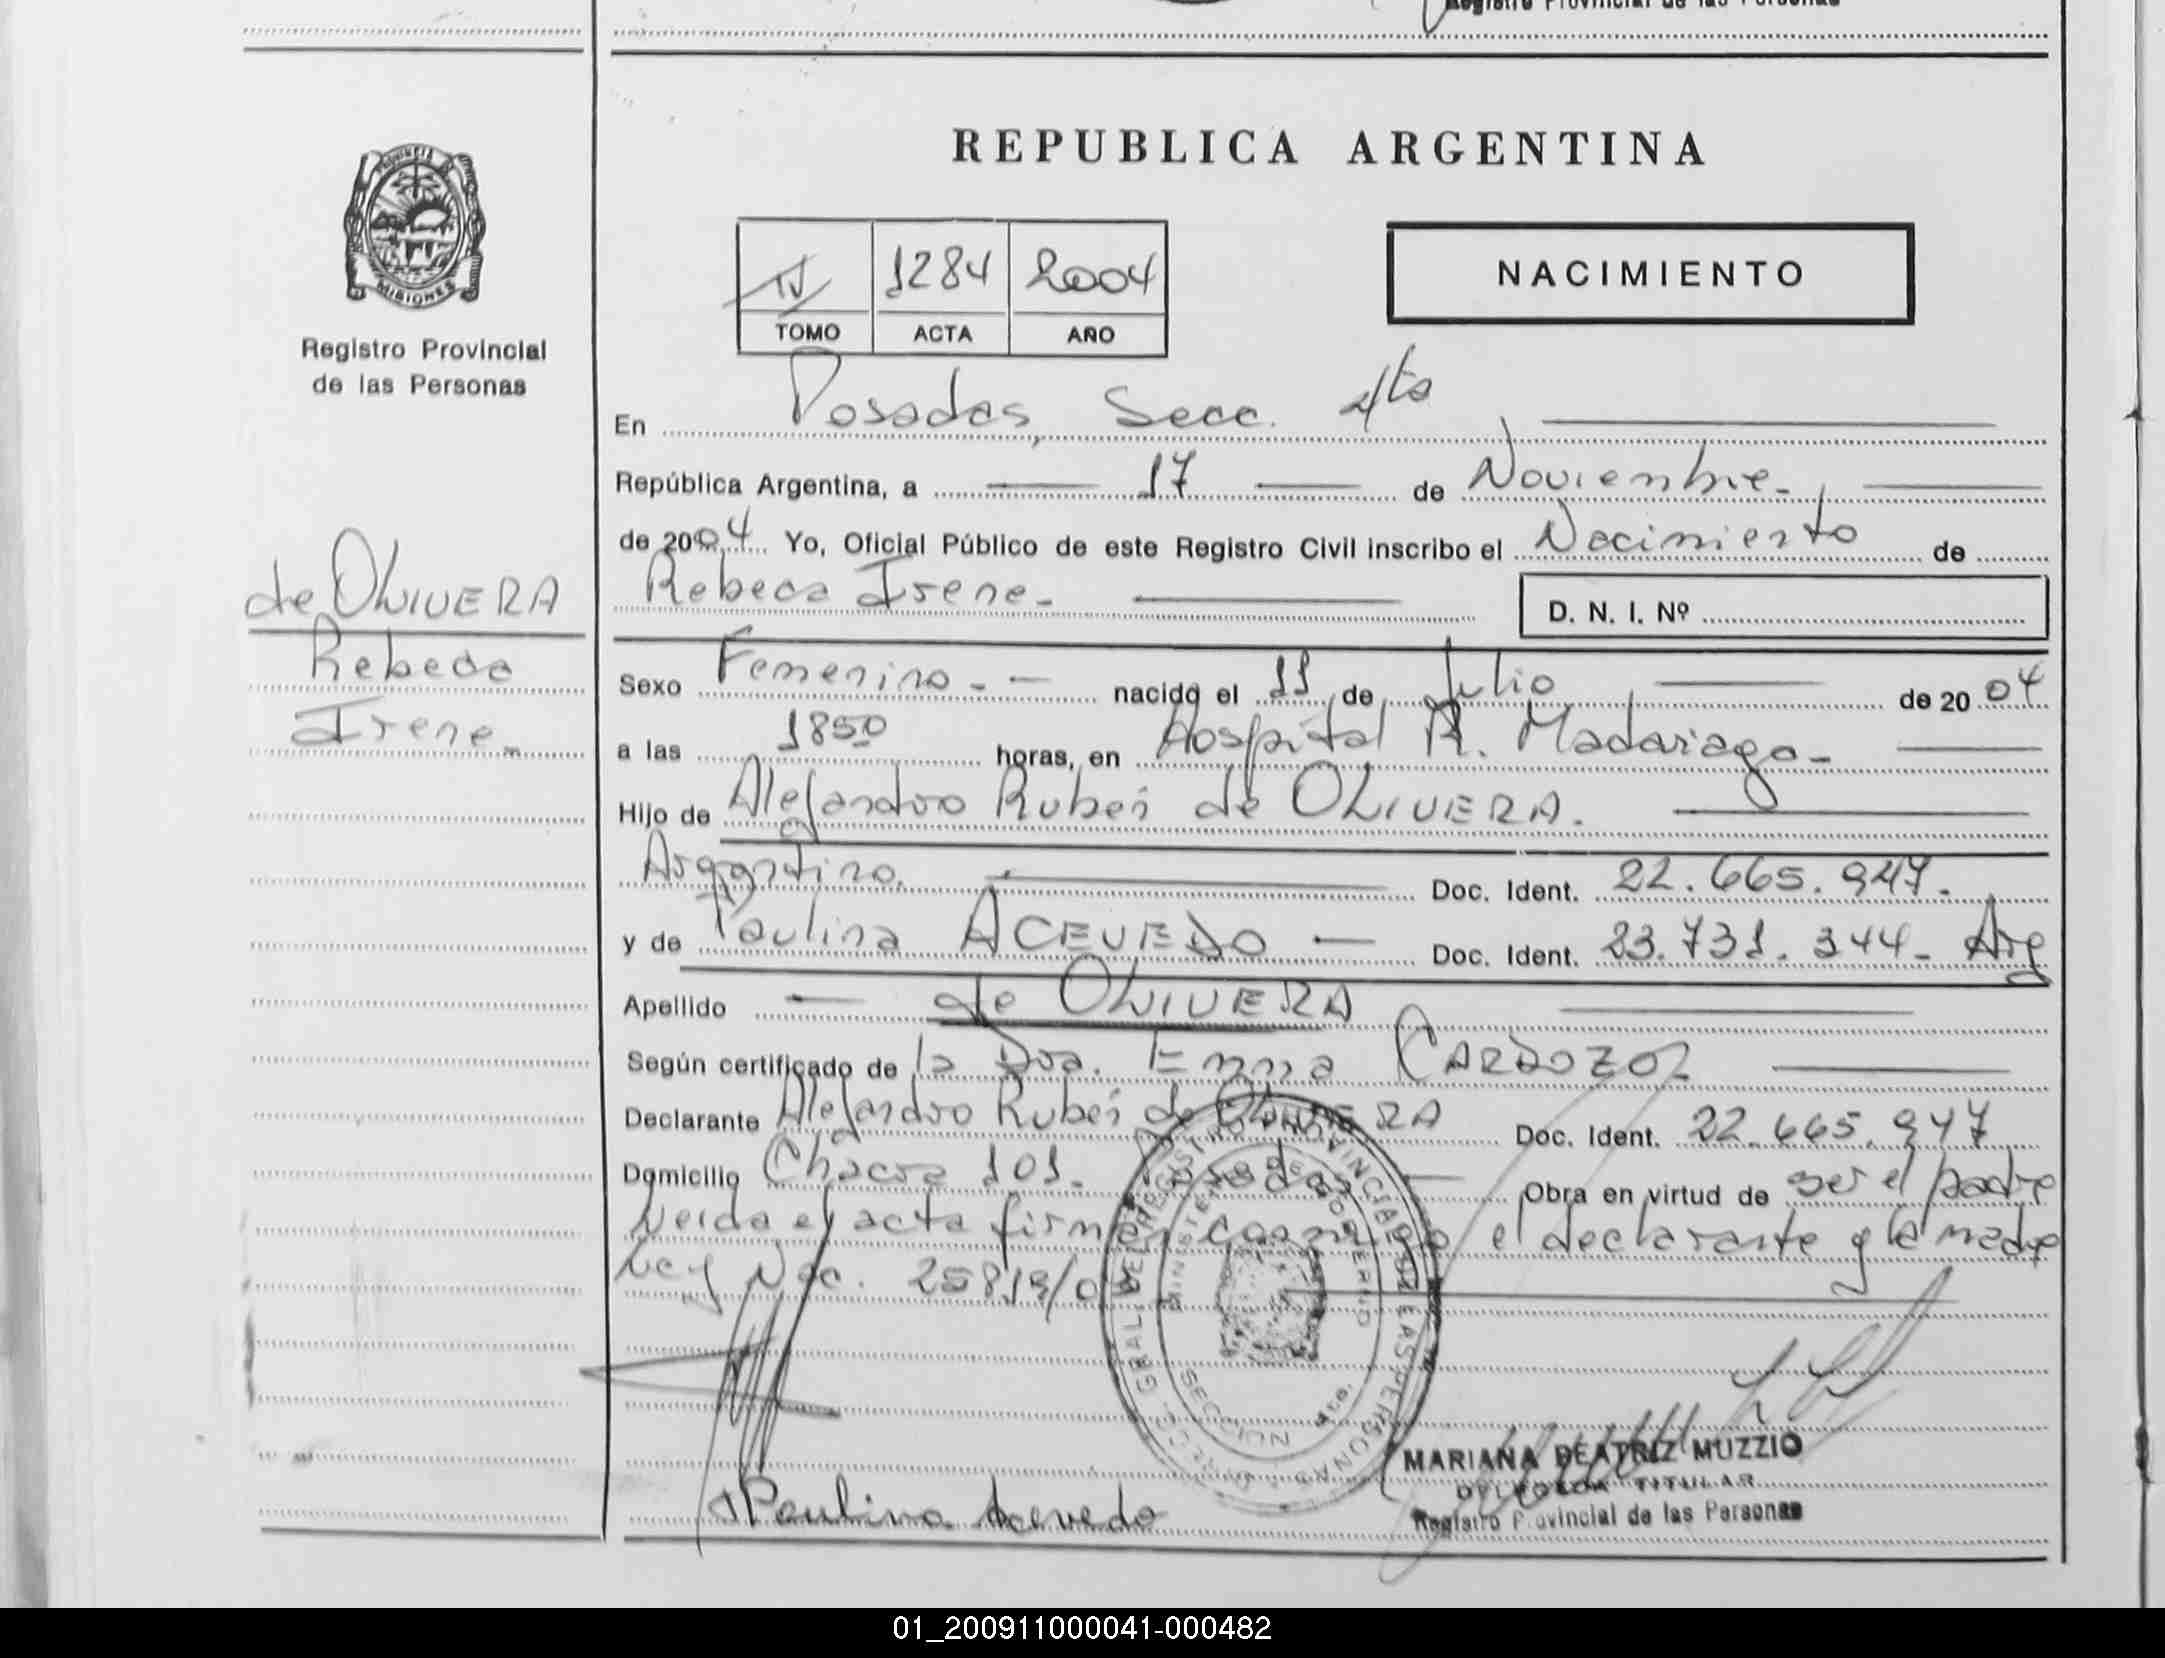 Registro Provincial de las Personas
REPUBLICA ARGENTINA
PROVINCIA DE
MISIONES
Registro Provincial
de las Personas
IV 1284 2004
TOMO ACTA AÑO
NACIMIENTO
En Posadas, Secc. 4ta
República Argentina, a 17 de Noviembre.
de 2004 Yo, Oficial Público de este Registro Civil inscribo el Nacimiento de
Rebeca Irene.
D. N. I. Nº
de OLIVERA
Rebeca
Irene.
Sexo Femenino. nacido el 11 de Julio de 2004
a las 1850 horas, en Hospital R. Madariaga.
Hijo de Alejandro Rubén de OLIVERA.
Argentino. Doc. Ident. 22.665.947.
y de Paulina ACEVEDO Doc. Ident. 23.731.344. Arg
Apellido de OLIVERA
Según certificado de la Dra. Emma CARDOZO
Declarante Alejandro Rubén de OLIVERA Doc. Ident. 22.665.947
Domicilio Chacra 101. Posadas Obra en virtud de ser el padre
Leida el acta firman conmigo el declarante y la madre
Ley Nac. 25819/0
DIRECC. GRAL. DEL REGISTRO PROVINCIAL DE LAS PERSONAS
MINISTERIO DE GOBIERNO
SECCION 4ta.
Paulina Acevedo
MARIANA BEATRIZ MUZZIO
TITULAR
Registro Provincial de las Personas
01_200911000041-000482